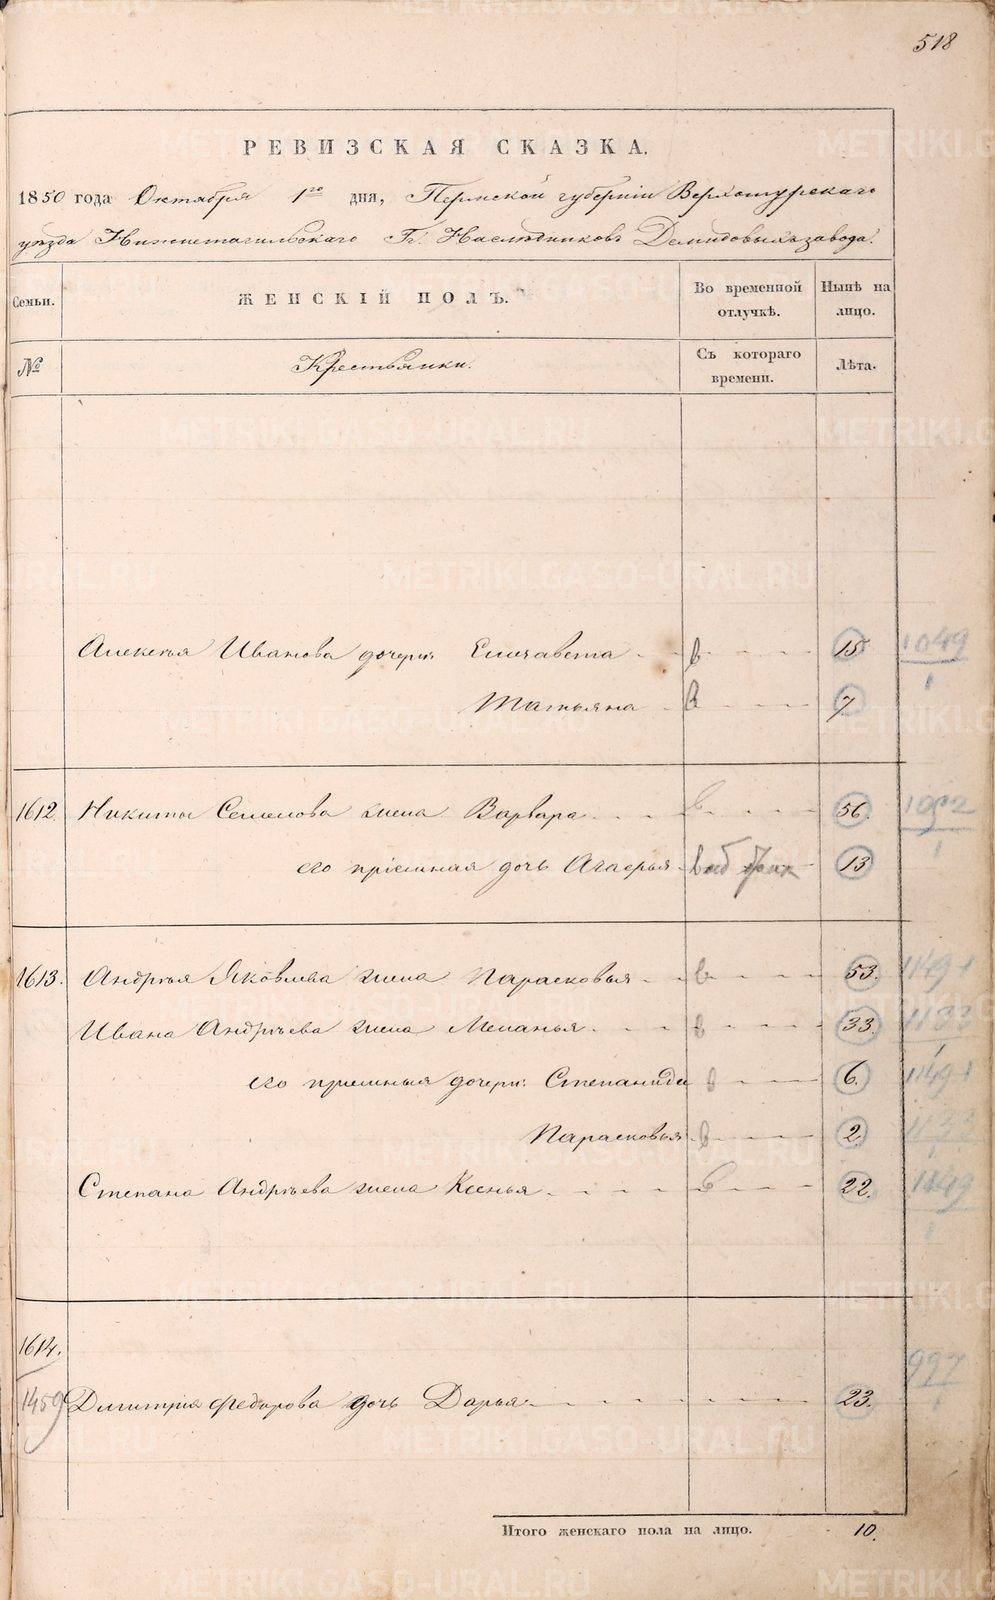 518
РЕВИЗСКАЯ СКАЗКА.
1850 года Октября 1го дня, Пермской губернiи Верхотурскаго
уѣзда Нижнетагильскаго Гг. Наслѣдниковъ Демидовыхъ завода.
Семьи. ЖЕНСКIЙ ПОЛЪ. Во временной отлучкѣ. Нынѣ на лицо.
№ Крестьянки. Съ котораго времени. Лѣта.
Алексѣя Иванова дочери: Елисавета в 15. 1049
1
Татьяна в 7.
1612. Никиты Семенова жена Варвара в 56. 1092
его прiемная дочь Агафья 13 1
1613. Андрѣя Яковлева жена Парасковья в 53. 1149 1
Ивана Андрѣева жена Меланья в 33. 1133
его прiемныя дочери: Степанида в 6. 1149 1
Парасковья в 2. 1133
Степана Андрѣева жена Ксенья в 22. 1149
1
1614.
997
1459 Дмитрiя Федорова дочь Дарья 23. 1
Итого женскаго пола на лицо. 10.
METRIKI.GASO-URAL.RU